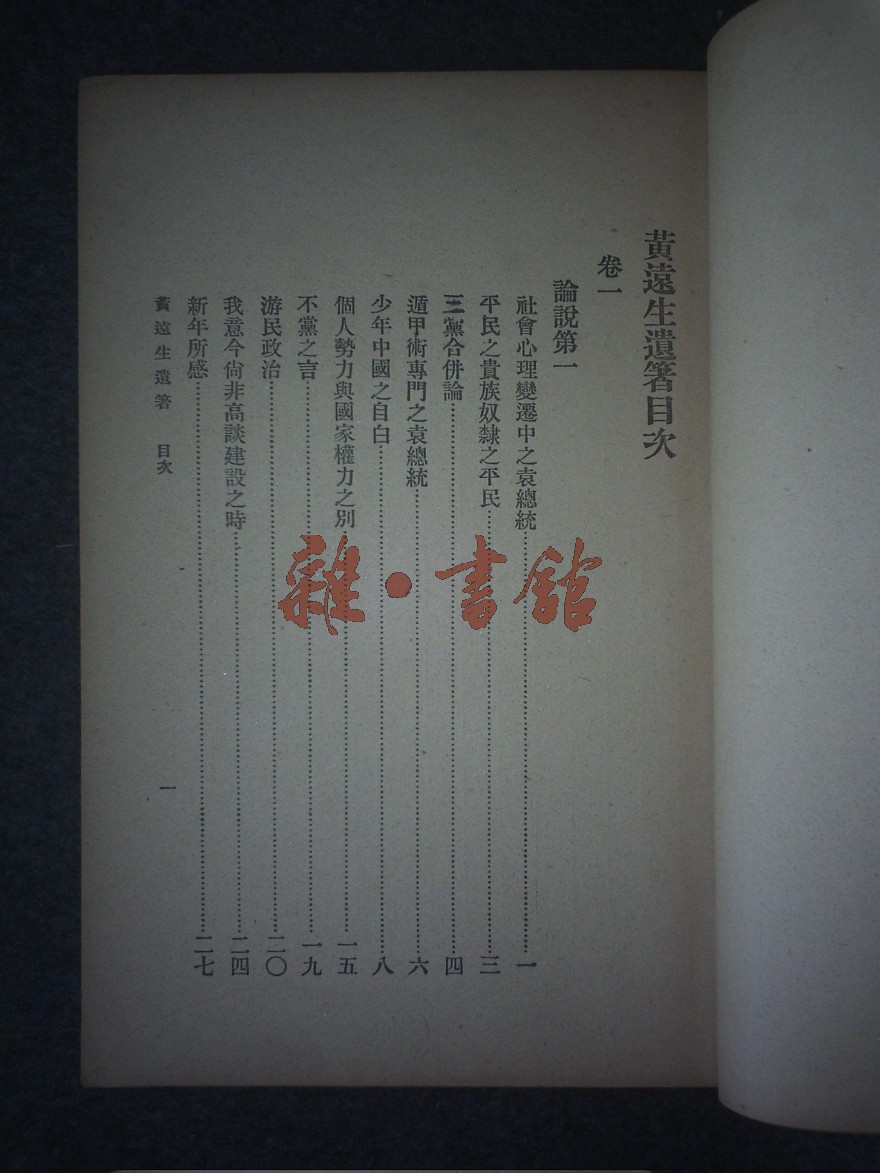 黃遠生遺箸目次
卷一
論說第一
社會心理變遷中之袁總統……一
平民之貴族奴隸之平民……三
三黨合併論……四
遁甲術專門之袁總統……六
少年中國之自白……八
個人勢力與國家權力之別……一五
不黨之言……一九
游民政治……二〇
我意今尙非高談建設之時……二四
新年所感……二七
黃遠生遺箸 目次 一
雜·書館